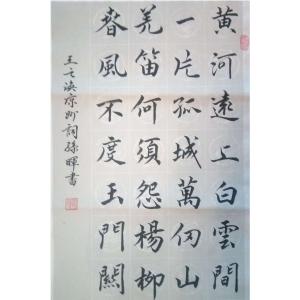 黄河遠上白雲間
一片孤城萬仞山
羌笛何須怨楊柳
春風不度玉門關
王之渙涼州詞孫暉書